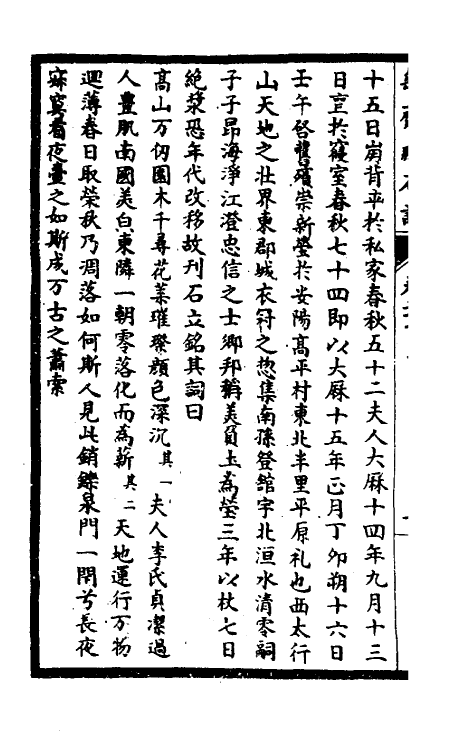 十五日崩背卒於私家春秋五十二夫人大厤十四年九月十三
日亶於寢室春秋七十四即以大厤十五年正月丁卯朔十六日
壬午啓舊殯崇新塋於安陽髙平村東北半里平原礼也西太行
山天地之壯界東郡城衣冠之惣集南孫登舘宇北洹水清零嗣
子子昂海淨江澄忠信之士鄉邦稱美負土為塋三年以杖七日
絶漿恐年代改移故刋石立銘其詞曰
髙山万仞園木千尋花葉璀璨顔色深沉其一夫人李氏貞潔過
人豐肌南國美白東隣一朝零落化而為薪其二天地運行万物
迴薄春日取榮秋乃凋落如何斯人見此銷鑠泉門一閇兮長夜
寐寞看夜臺之如斯成万古之蕭索